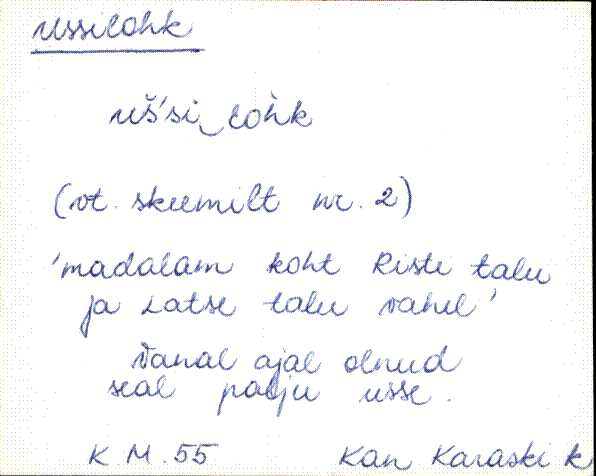 ussilohk
uš'si‿lohk
(vt. skeemilt nr. 2)
'madalam koht Risti talu
ja Latse talu vahel'
Vanal ajal olnud
seal palju usse.
K M. 55 Kan Karaski k